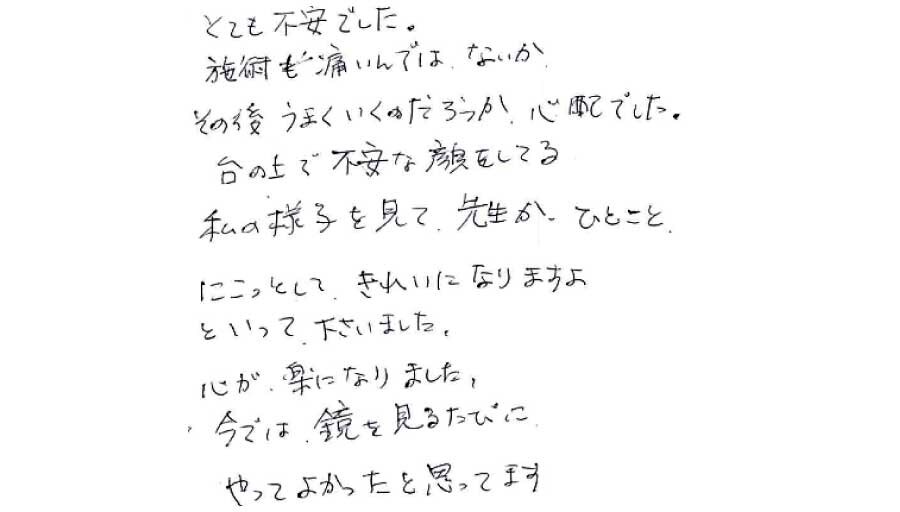 とても不安でした。
施術も痛いんでは、ないか
その後うまくいくのだろうか、心配でした。
台の上で不安な顔をしてる
私の様子を見て、先生が、ひとこと、
にこっとして、きれいになりますよ
といって、下さいました。
心が、楽になりました。
今では、鏡を見るたびに
やってよかったと思ってます